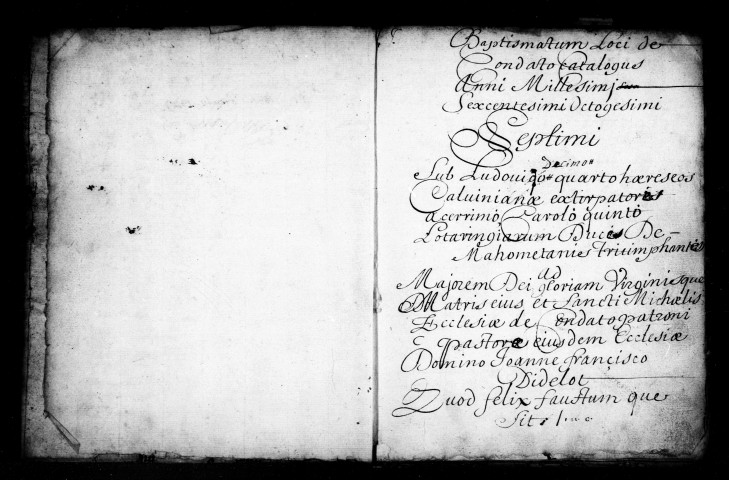 Baptismatum Loci de
Condato Catalogus
Anni Millesimj
Sexcentesimi Octogesimi
Septimi
decimo
Sub Ludovico quarto hæreseos
Calvinianæ extirpatores
acerrimo Carolo quinto
Lotaringiarum Duces De
Mahometanies triumphantes
ad
Majorem Dei gloriam Virginisque
Matris eius et Sancti Michælis
Ecclesiæ de Condato patroni
pastore eiusdem Ecclesiæ
Domino Joanne francisco
Didelot
Quod felix faustum que
Sit